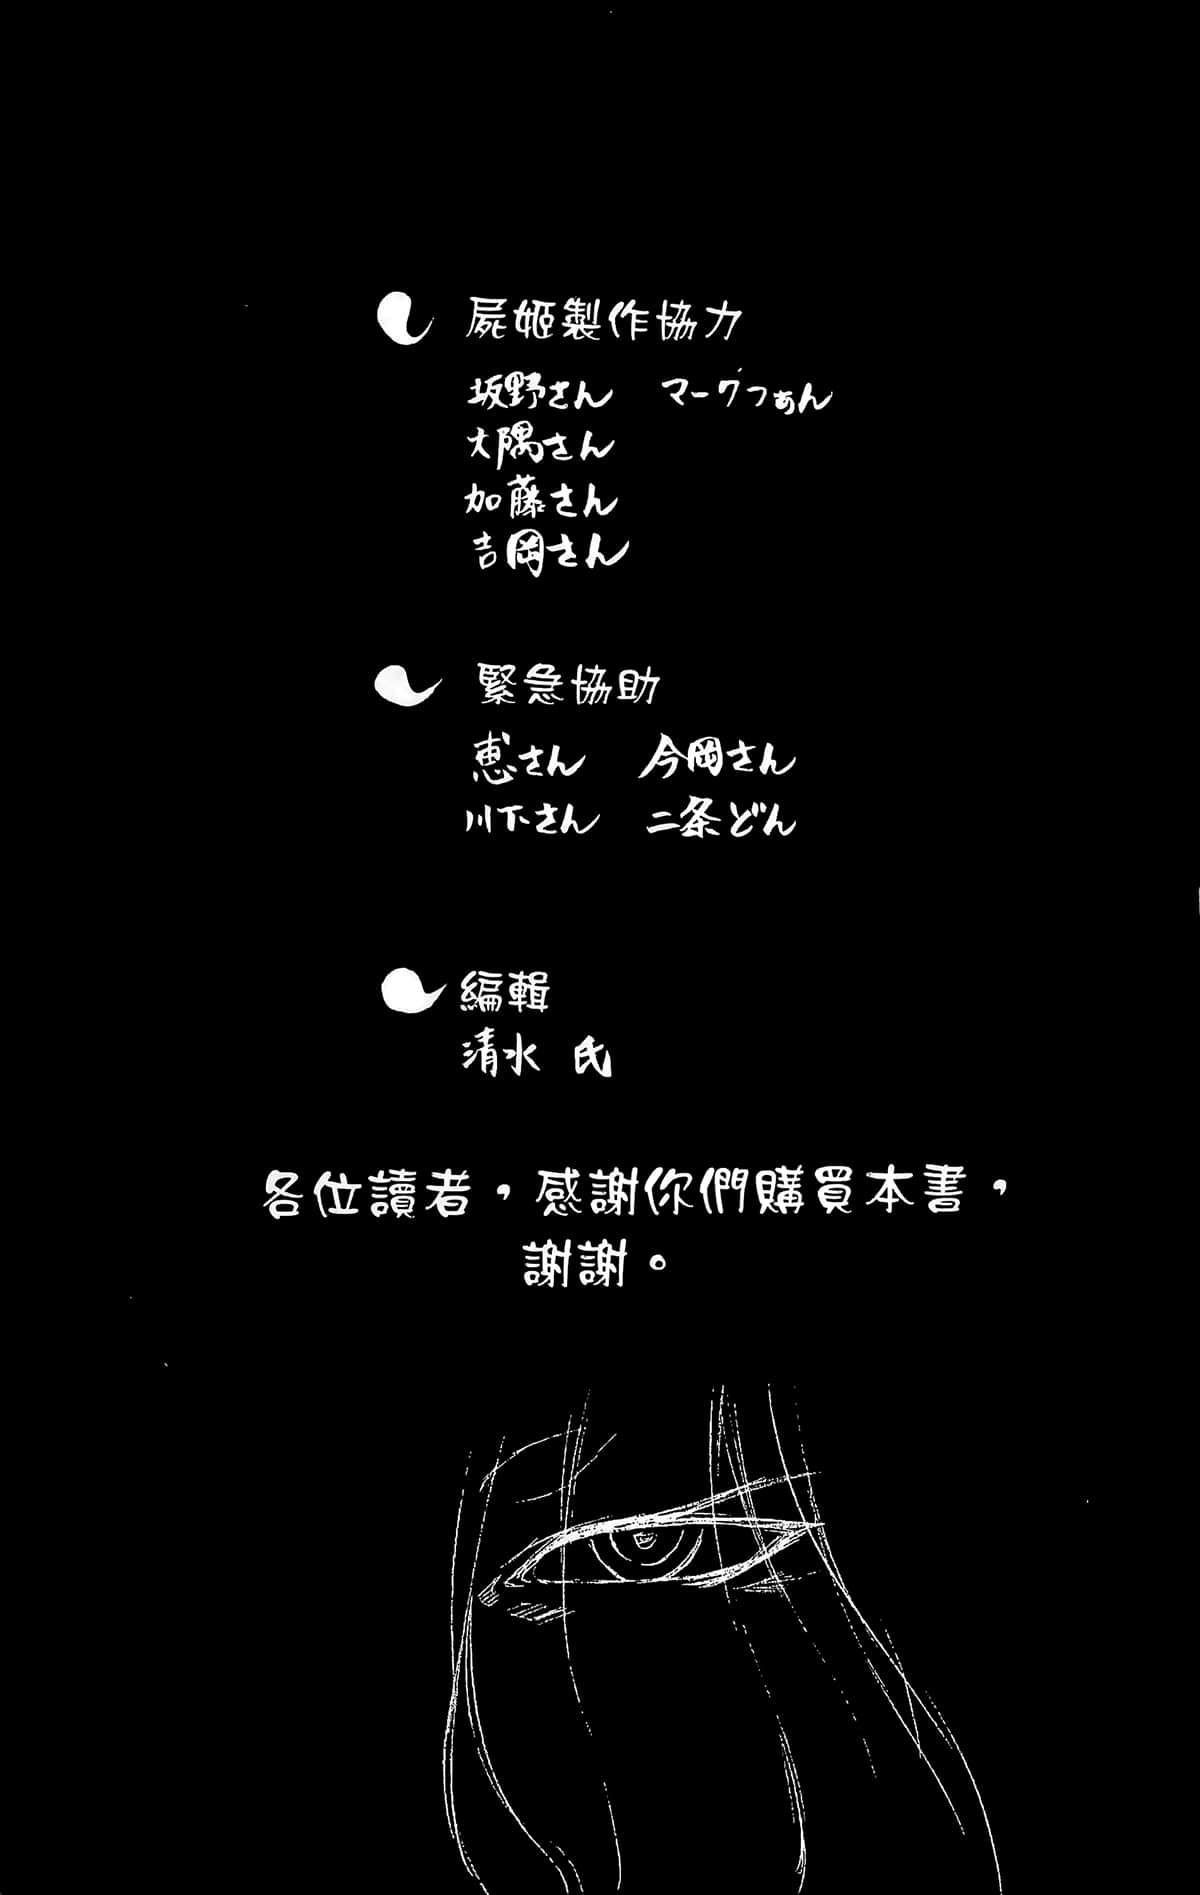 屍姬製作協力
坂野さん マークつぁん
大隅さん
加藤さん
吉岡さん
緊急協助
恵さん 今岡さん
川下さん 二条どん
編輯
清水 氏
各位讀者，感謝你們購買本書，
謝謝。